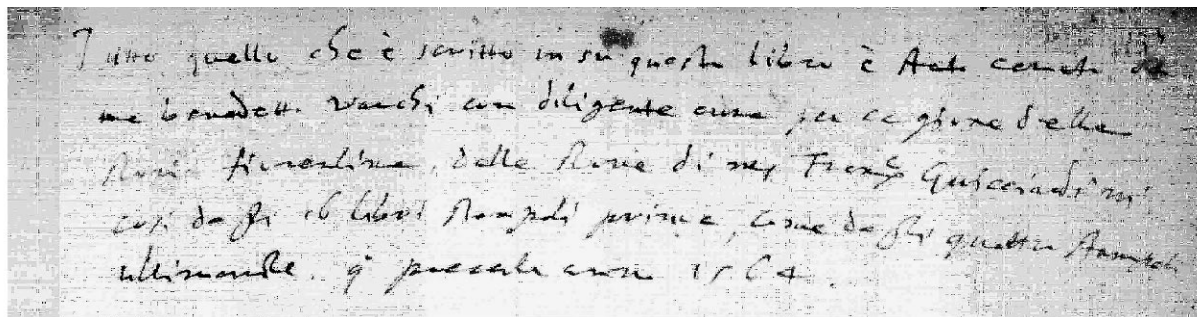 Tutto quello che è scritto in su questo libro è stato cavato da
me benedetto varchi con diligente cura per cagione della
storia fiorentina, dalle storie di mess Franc° Guicciardini
così dagli 16 libri stampati prima, come dagli quattro stampati
ultimamente. q° presente anno 1564.